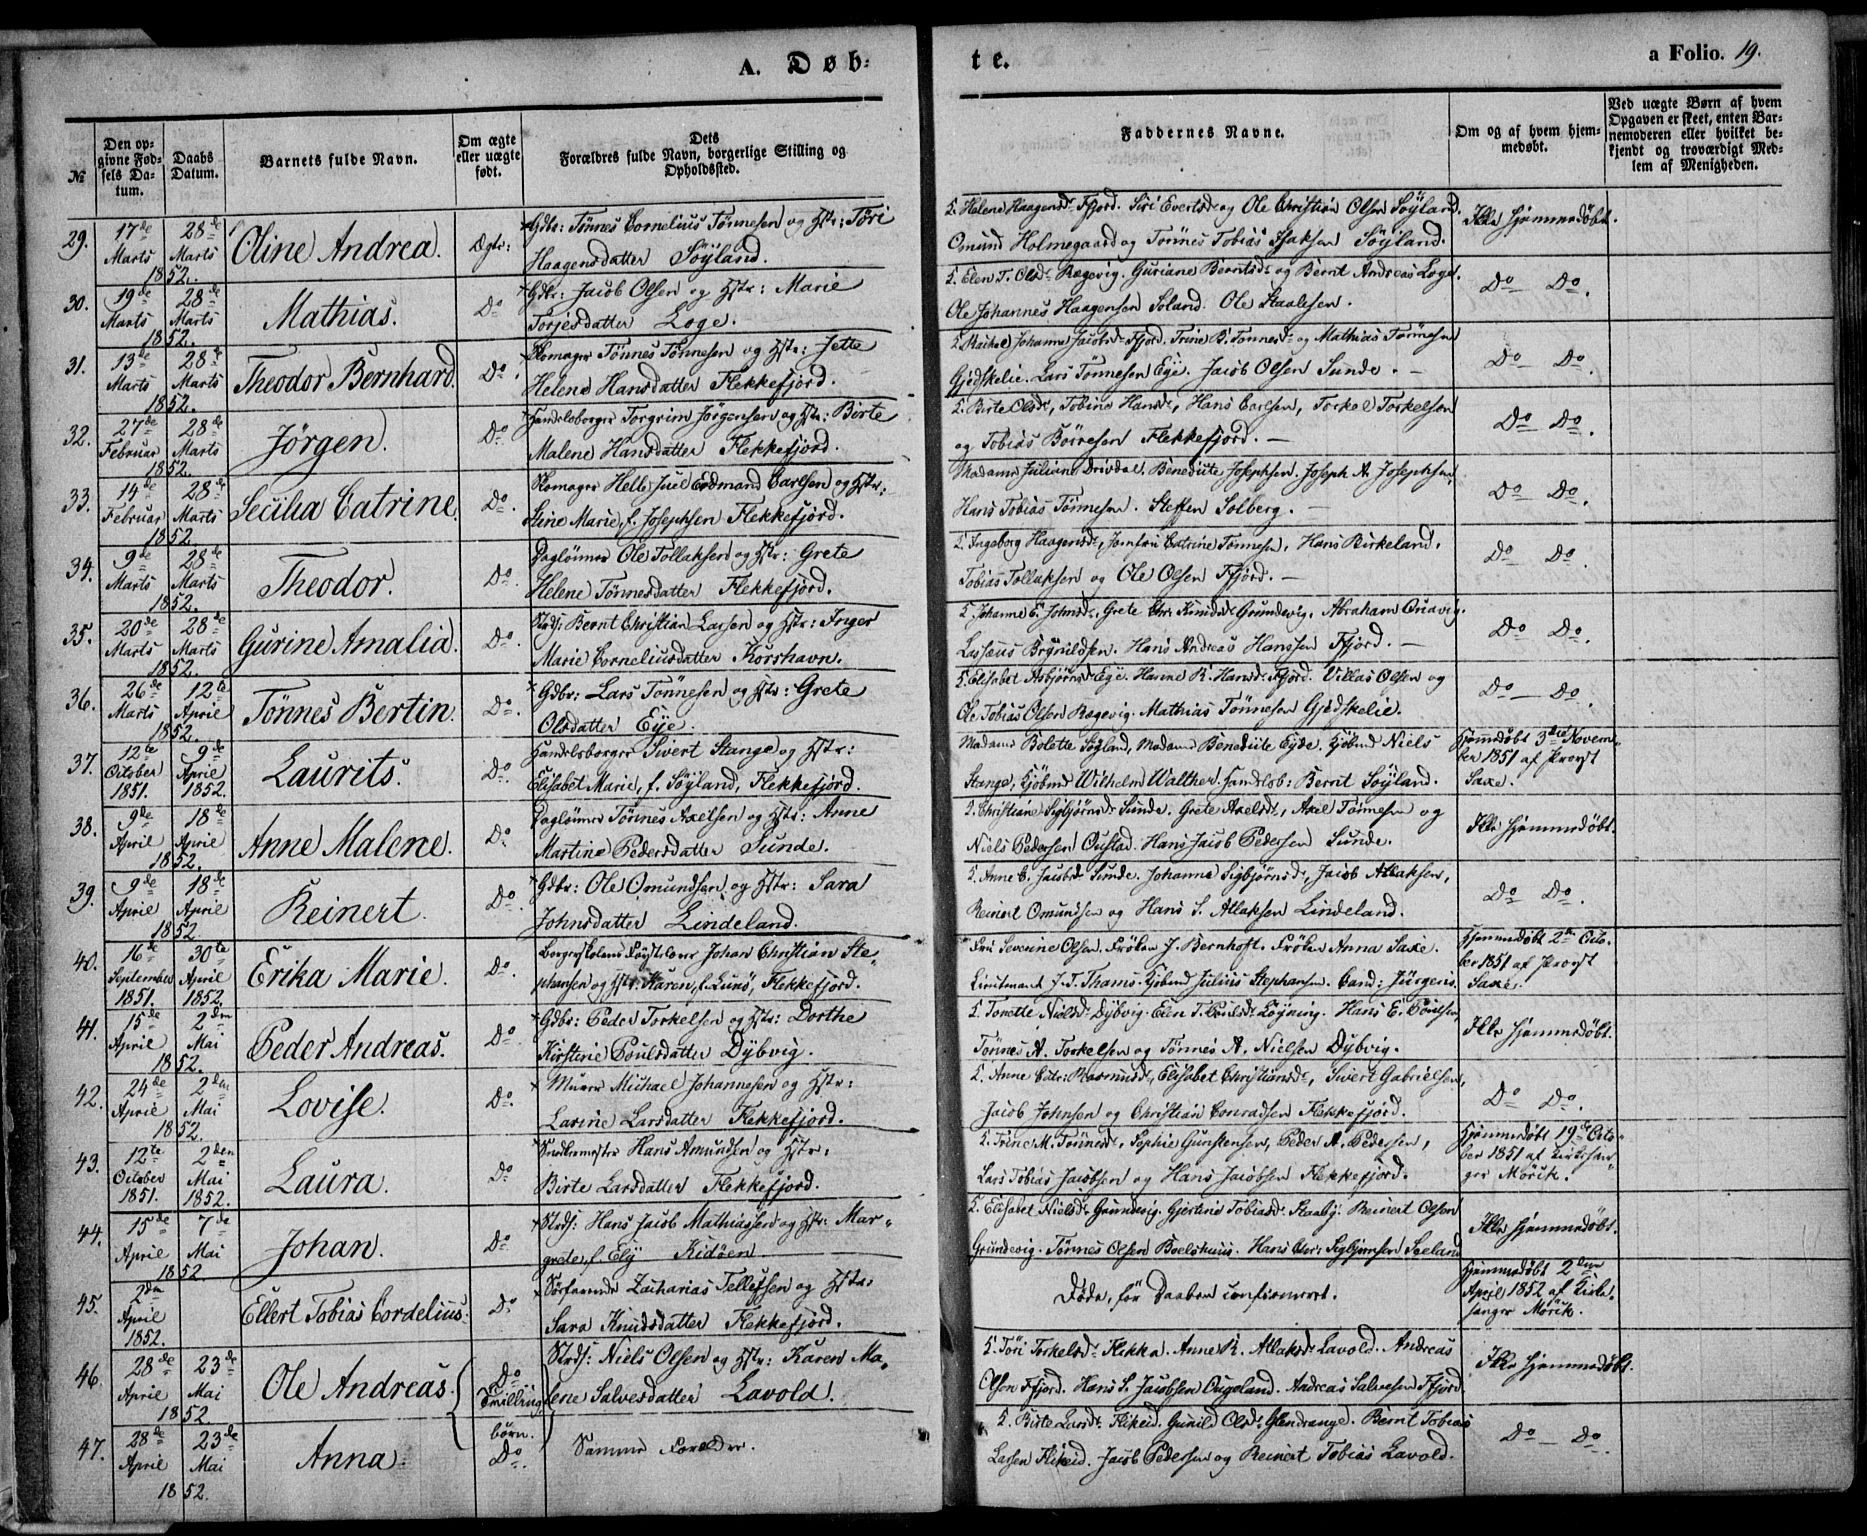 A. Døb-
te.
a Folio. 19.
№
Den op-
givne Fød-
sels Da-
tum.
Daabs
Datum.
Barnets fulde Navn.
Om ægte
eller uægte
født.
Dets
Forældres fulde Navn, borgerlige Stilling og
Opholdssted.
Faddernes Navne.
Om og af hvem hjem-
medøbt.
Ved uægte Børn af hvem
Opgaven er skeet, enten Bar-
nemoderen eller hvilket be-
kjendt og troværdigt Med-
lem af Menigheden.
29. 17de Marts 28de Marts 1852. Oline Andrea. Ægte:
Gdbr: Tønnes Cornelius Tønnesen og Hstr: Tøri
Haagensdatter Söyland.
Helene Haagensd. Ffjord. Siri Evertsd. og Ole Christian Olsen Söyland.
Omund Holmegaard og Tønnes Tobias Isaksen Söyland.
Ikke hjemmedöbt.
30. 19de Marts 28de Marts 1852. Mathias. Do
Gdbr: Jacob Olsen og Hstr: Marie
Torjesdatter Loge.
Elen T. Olsd. Ragevig. Guriane Berntsd. og Bernt Andreas Loge.
Ole Johannes Haagensen Soland. Ole Staalesen.
Do — Do.
31. 13de Marts 28de Marts 1852. Theodor Bernhard. Do.
Tønnes Tønnesen og Hstr: Jette
Helene Hansdatter Flekkefjord.
Rachel Johanne Jacobsd. Ffjord. Trine B. Tønnesd. og Mathias Tønnesen
Gjedskelie. Lars Tønnesen Eye. Jacob Olsen Sunde. —
Do Do.
32. 27de Februar 28de Marts 1852. Jörgen. Do.
Handelsborger Torgrim Jörgensen og Hstr: Birte
Malene Hansdatter Flekkefjord.
Birte Olsd., Tobine Hansd., Hans Carlsen, Torkel Torkelsen
og Tobias Börresen Flekkefjord. —
Do Do.
33. 14de Februar 28de Marts 1852. Secilia Catrine. Do.
Juel Edmand Carlsen og Hstr:
Stine Marie, f. Josephsen Flekkefjord.
Madame Juliane Drivdal. Benedicte Josephsen. Joseph A. Josephsen,
Hans Tobias Tønnesen. Steffen Solberg. —
Do Do.
34. 9de Marts 28de Marts 1852. Theodor. Do.
Daglönner Ole Tollaksen og Hstr: Grete
Helene Tønnesdatter Flekkefjord.
Ingeborg Haagensd., Jomfru Catrine Tønnesen, Hans Birkeland,
Tobias Tollaksen og Ole Olsen Ffjord. —
Do Do.
35. 20de Marts 28de Marts 1852. Gurine Amalia. Do.
Strds: Bernt Christian Larsen og Hstr: Inger
Marie Corneliusdatter Korshavn.
Johanne C. Johnsd., Grete Chr. Knudsd. Grundevig, Abraham
Lassaus Brynildsen. Hans Andreas Hanssen Ffjord. —
Do Do.
36. 26de Marts 12te April 1852. Tønnes Bertin. Do.
Gdbr: Lars Tønnesen og Hstr: Grete
Olsdatter Eye.
Elisabet Asbjörnsd. Eye. Hanne R. Hansd. Ffjord. Villas Olsen og
Ole Tobias Olsen Ragevig. Mathias Tønnesen Gjedskelie.
Do — Do.
37. 12te October 1851. 9de April 1852. Laurits. Do.
Handelsborger Sivert Stange og Hstr:
Elisabet Marie, f. Söyland, Flekkefjord.
Madame Bolette Söyland, Madame Benedicte Eyde. Kjöbmd Niels
Stange, Kjöbmd Wilhelm Walther. Handlsb: Bernt Söyland.
Hjemmedöbt 3die Novem-
ber 1851 af Provst
Saxe.
38. 9de April 18de April 1852. Anne Malene. Do
Daglönner Tønnes Axelsen og Hstr: Anne
Martine Pedersdatter Sunde.
Christiane Sigbjörnsd. Sunde. Grete Axelsd., Axel Tønnesen og
Niels Pedersen Oustad. Hans Jacob Pedersen Sunde.
Ikke hjemmedöbt.
39. 9de April 18de April 1852. Reinert. Do.
Gdbr: Ole Omundsen og Hstr: Sara
Johnsdatter Lindeland.
Anne C. Jacobsd. Sunde. Johanne Sigbjörnsd., Jacob Atlaksen,
Reinert Omundsen og Hans S. Atlaksen Lindeland.
Do Do.
40. 16de September 1851. 30te April 1852. Erika Marie. Do.
Borgerskolens Johan Christian Ste-
phansen og Hstr: Karen, f. Lund, Flekkefjord.
Fru Severine Olsen. Fröken J. Bernhoft. Fröken Anna Saxe.
Lieutnant J. T. Thams. Kjöbmd Julius Stephansen. Cand: Jürgens.
Hjemmedöbt 2den Octo-
ber 1851 af Provst
Saxe.
41. 15de April 2den Mai 1852. Peder Andreas. Do.
Gdbr: Peder Torkelsen og Hstr: Dorthe
Kirstine Poulsdatter Dybvig.
Tonette Nielsd. Dybvig. Elen T. Poulsd. Löyning. Hans E. Poulsen,
Tønnes A. Torkelsen og Tønnes A. Nielsen Dybvig.
Ikke hjemmedöbt.
42. 24de April 2den Mai 1852. Lovise. Do.
Murer Michael Johannesen og Hstr:
Lavine Larsdatter Flekkefjord.
Anne Catr: Rasmusd., Elisabet Christiansd., Sivert Gabrielsen,
Jacob Johnsen og Christian Conradsen Flekkefjord.
Do Do.
43. 12te October 1851. 2den Mai 1852. Laura. Do
Snedkermester Hans Amundsen og Hstr:
Birte Larsdatter Flekkefjord.
Trine M. Tønnesd., Sophie Gunstensen, Peder A. Pedersen,
Lars Tobias Jacobsen og Hans Jacobsen Flekkefjord.
Hjemmedöbt 19de Octo-
ber 1851 af Kirkesan-
ger Mörik.
44. 15de April 7de Mai 1852. Johan. Do
Strds: Hans Jacob Mathiassen og Hstr: Mar-
grete, f. Ely Kidöen.
Elisabet Nielsd. Grundevig. Gjertine Tobiasd. Staaby. Reinert Olsen
Grundevig. Tønnes Olsen Boelshuus. Hans Chr: Sigbjørnsen Seeland.
Ikke hjemmedöbt.
45. 2den April 1852. Ellert Tobias Cordelius. Do
Söfarende Zacharias Tellefsen og Hstr:
Sara Knudsdatter Flekkefjord.
Döde, før Daaben confirmeret.
Hjemmedöbt 2den
April 1852 af Kirke-
sanger Mörik.
46. 28de April 23de Mai 1852. Ole Andreas. Do. Tvilling-
Strds: Niels Olsen og Hstr: Karen Ma-
lene Salvesdatter Lavold.
Töri Torkelsd. Flikka. Anne K. Atlaksd. Lavold. Andreas
Olsen Ffjord. Hans S. Jacobsen Ougeland. Andreas Salvesen Ffjord.
Ikke hjemmedöbt.
47. 28de April 23de Mai 1852. Anna. börn. Do.
Samme Forældre.
Birte Larsd. Flikeid. Gunild Olsd. Glendrange. Bernt Tobias
Larsen Flikeid. Jacob Pedersen og Reinert Tobias Lavold.
Do — Do.